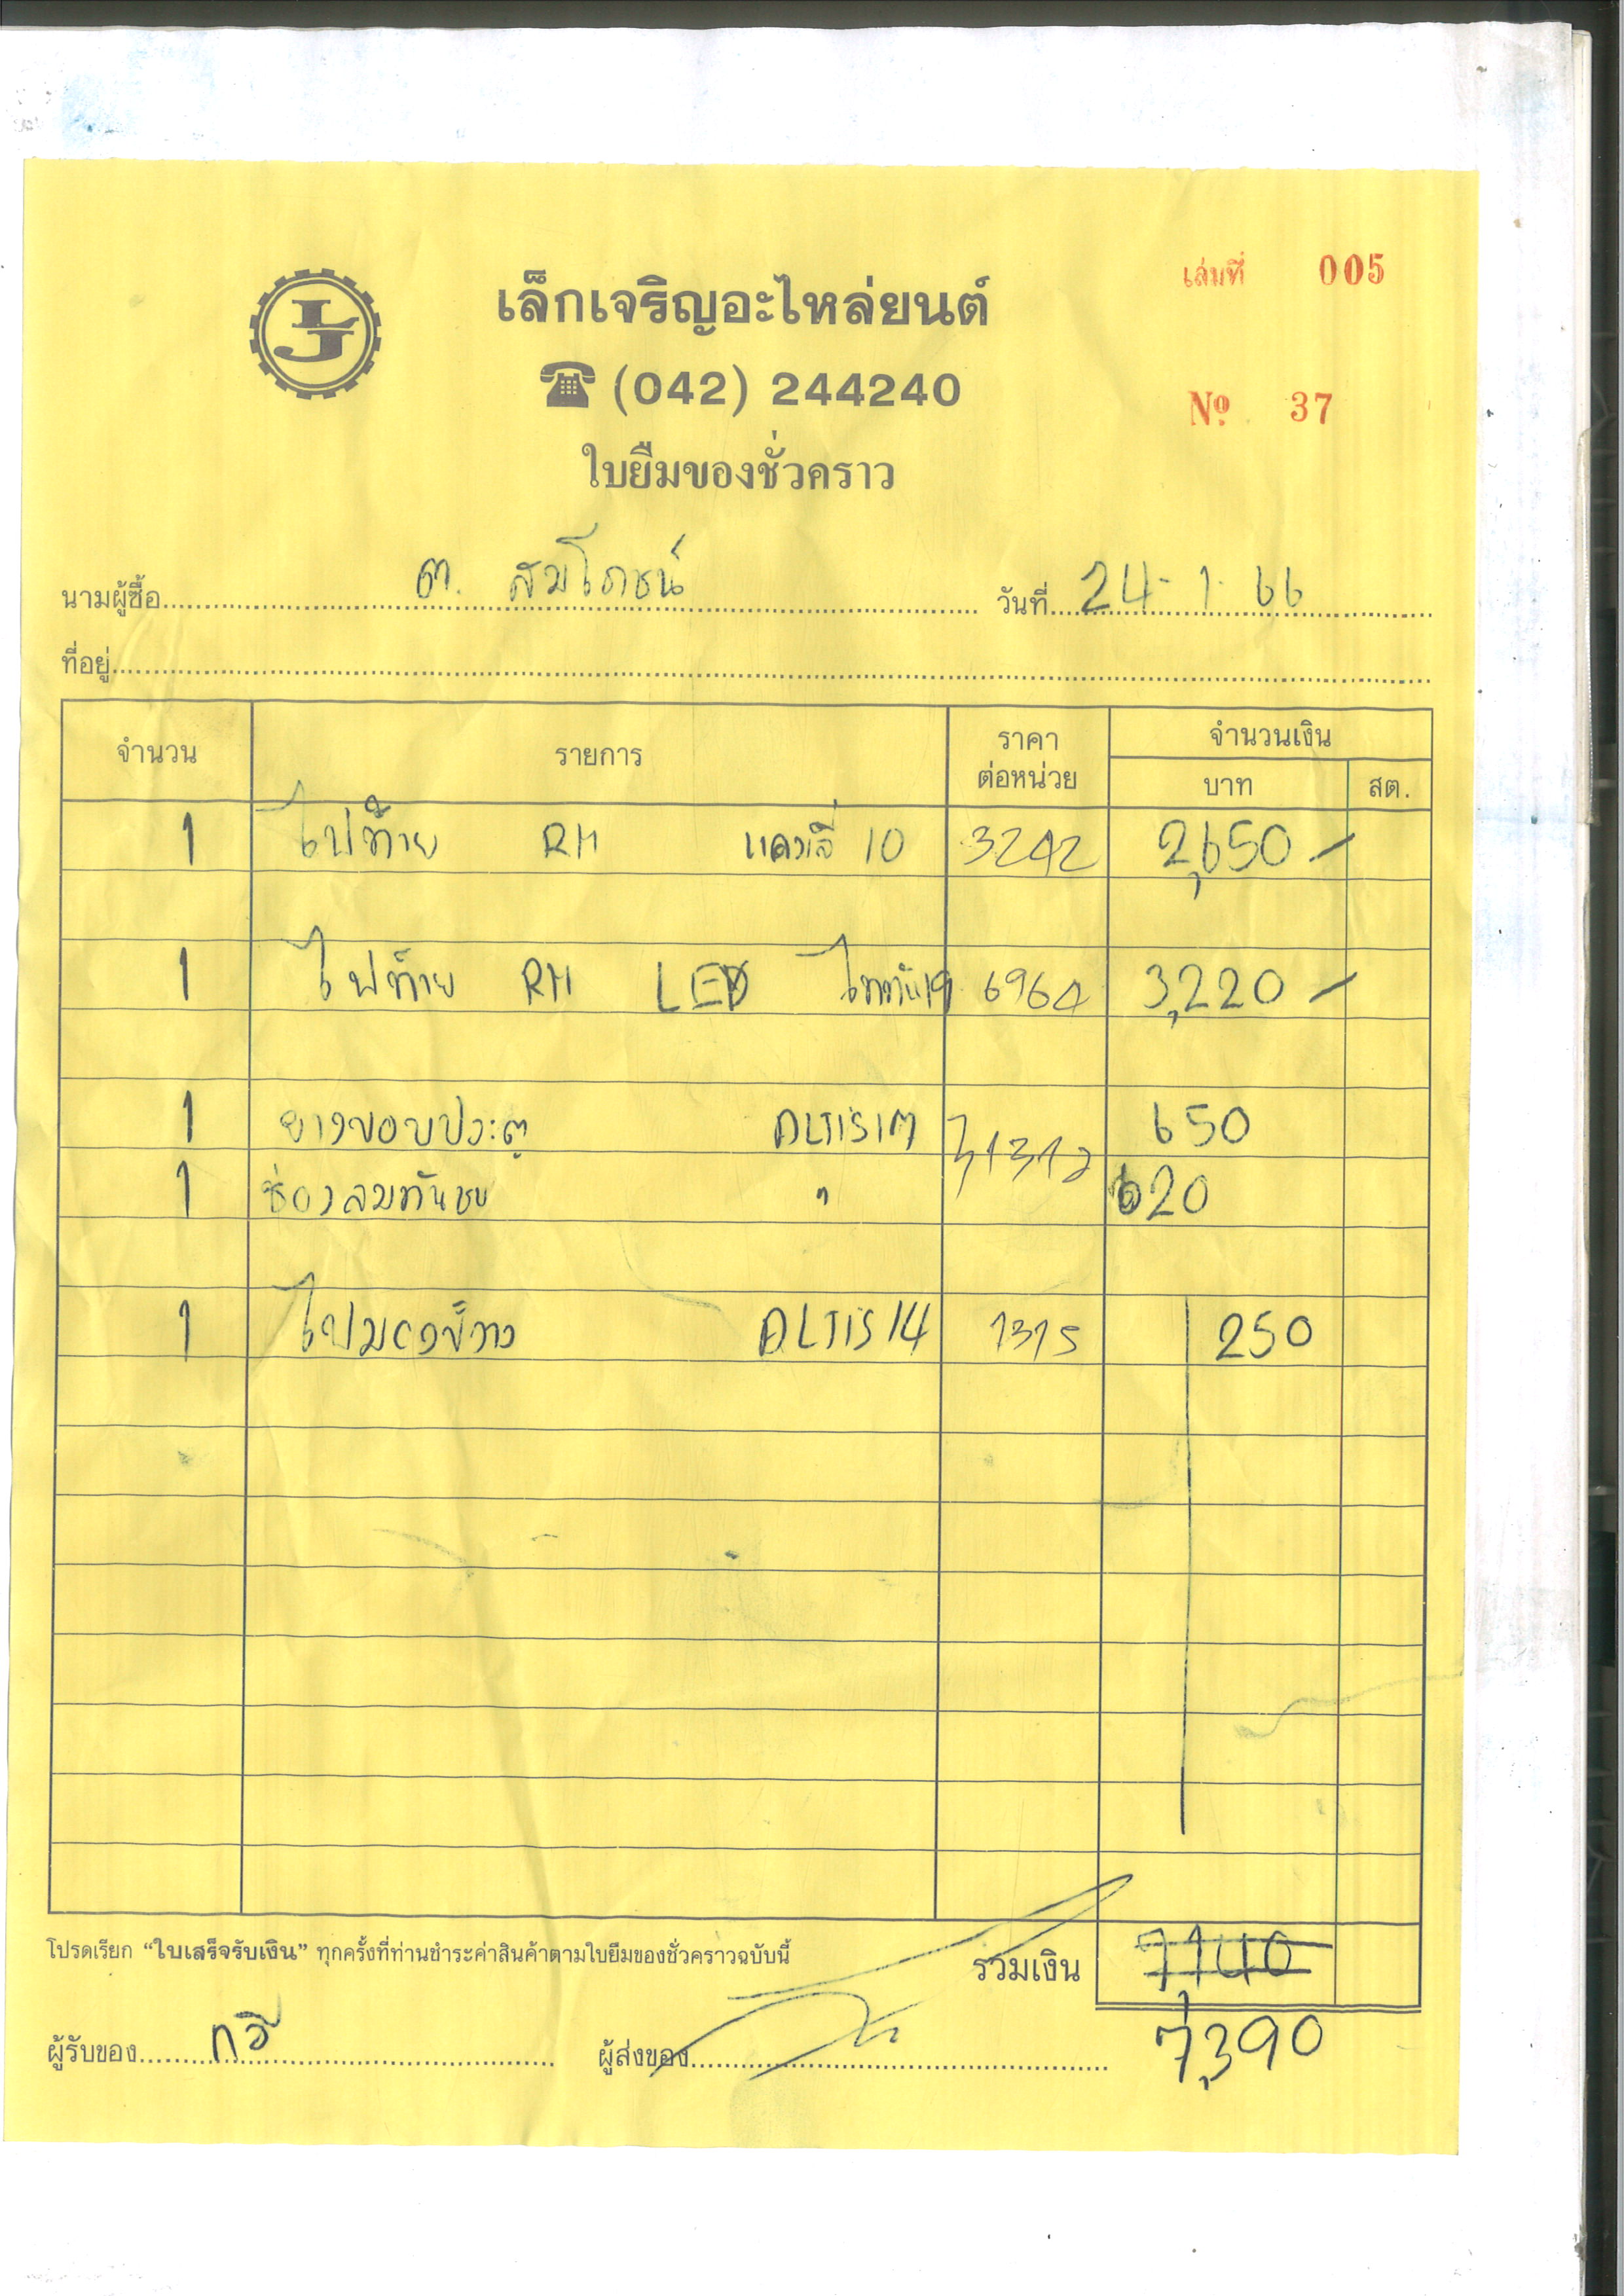 เล่มที่ 005
LJ
เล็กเจริญอะไหล่ยนต์
(042) 244240
Nº. 37
ใบยืมของชั่วคราว
นามผู้ซื้อ ต. สมโภชน์ วันที่ 24-1-66
ที่อยู่
จำนวน รายการ ราคาต่อหน่วย จำนวนเงิน
บาท สต.
1 ไฟท้าย RH แคมรี่ 10 3242 2,650 -
1 ไฟท้าย RH LED ไททัน19 6964 3,220 -
1 ยางขอบประตู ALTIS17 650
1 ช่องลมกันชน " 620
1 ไฟมองข้าง ALTIS 14 1315 250
โปรดเรียก “ใบเสร็จรับเงิน” ทุกครั้งที่ท่านชำระค่าสินค้าตามใบยืมของชั่วคราวฉบับนี้
รวมเงิน 7140
7,390
ผู้รับของ กวี ผู้ส่งของ